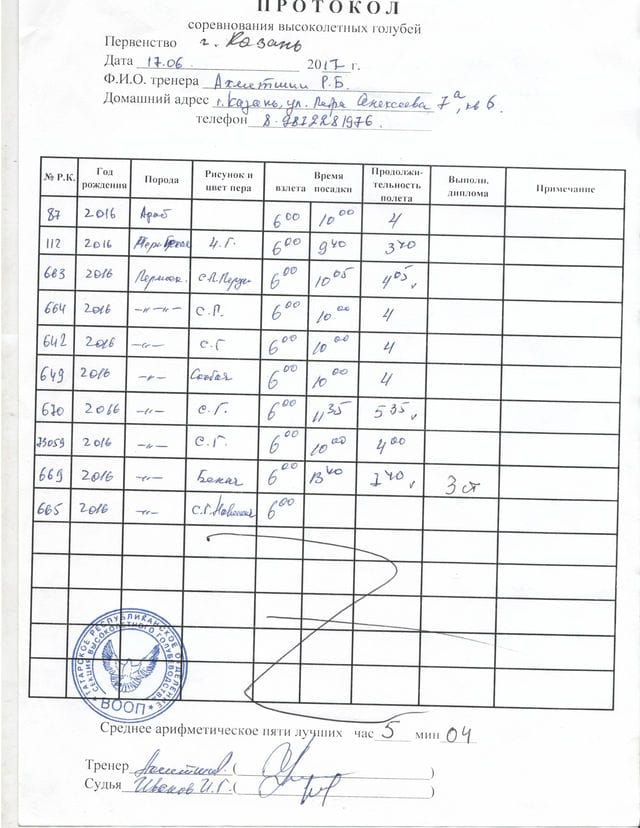 ПРОТОКОЛ
соревнования высоколетных голубей
Первенство г. Казань
Дата 17.06 2017 г.
Ф.И.О. тренера Ахметшин Р.Б.
Домашний адрес г. Казань, ул. 7а, кв 6.
телефон 8-9872281976.
№ Р.К. Год рождения Порода Рисунок и цвет пера Время взлета посадки Продолжительность полета Выполн. диплома Примечание
87 2016 Араб 6 00 10 00 4
112 2016 Ч.Г. 6 00 9 40 3 40
663 2016 Пермск. 6 00 10 05 4 05
664 2016 -"-"- С.П. 6 00 10 00 4
642 2016 -"- С.Г 6 00 10 00 4
649 2016 -"- 6 00 10 00 4
670 2016 -"- С.Г. 6 00 11 35 5 35
73059 2016 -"- С.Г. 6 00 10 00 4 00
669 2016 -"- 6 00 13 40 7 40 3 ст
665 2016 -"- С.Г. 6 00
ТАТАРСКОЕ РЕСПУБЛИКАНСКОЕ ОТДЕЛЕНИЕ
СЕКЦИЯ ВЫСОКОЛЕТНОГО ГОЛУБЕВОДСТВА
ВООП
Среднее арифметическое пяти лучших час 5 мин 04
Тренер Ахметшин ( )
Судья Иванов И.Г. ( )